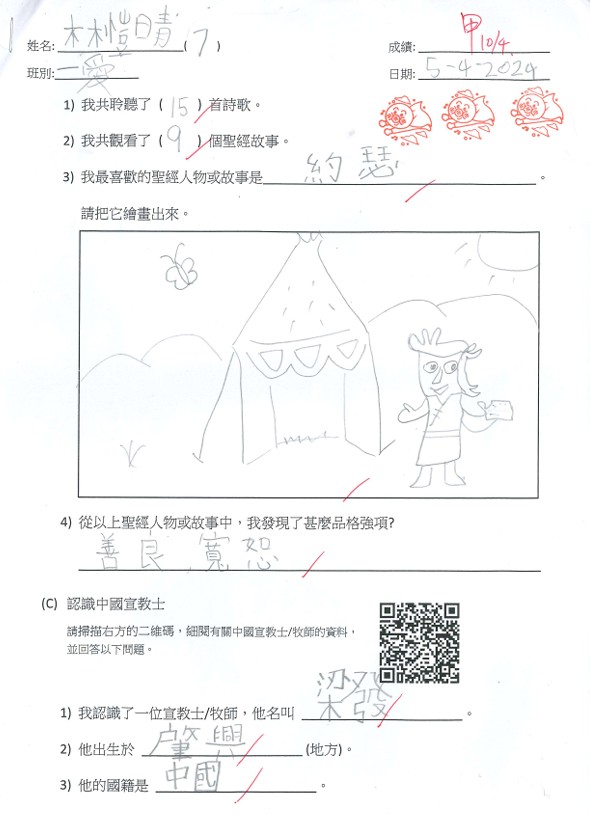 姓名: 林愷晴 ( 7 )
成績: 甲 10/4
班別: 一愛
日期: 5-4-2024
1) 我共聆聽了 ( 15 ) 首詩歌。
2) 我共觀看了 ( 9 ) 個聖經故事。
3) 我最喜歡的聖經人物或故事是 約瑟 。
請把它繪畫出來。
4) 從以上聖經人物或故事中，我發現了甚麼品格強項?
善良，寬恕
(C) 認識中國宣教士
請掃描右方的二維碼，細閱有關中國宣教士/牧師的資料，
並回答以下問題。
1) 我認識了一位宣教士/牧師，他名叫 梁發 。
2) 他出生於 肇興 (地方)。
3) 他的國籍是 中國 。